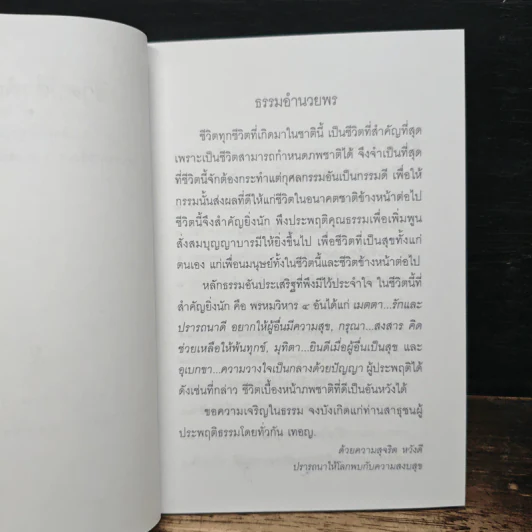 ธรรมอำนวยพร
ชีวิตทุกชีวิตที่เกิดมาในชาตินี้ เป็นชีวิตที่สำคัญที่สุด
เพราะเป็นชีวิตสามารถกำหนดภพชาติได้ จึงจำเป็นที่สุด
ที่ชีวิตนี้จักต้องกระทำแต่กุศลกรรมอันเป็นกรรมดี เพื่อให้
กรรมนั้นส่งผลที่ดีให้แก่ชีวิตในอนาคตชาติข้างหน้าต่อไป
ชีวิตนี้จึงสำคัญยิ่งนัก พึงประพฤติคุณธรรมเพื่อเพิ่มพูน
สั่งสมบุญญาบารมีให้ยิ่งขึ้นไป เพื่อชีวิตที่เป็นสุขทั้งแก่
ตนเอง แก่เพื่อนมนุษย์ทั้งในชีวิตนี้และชีวิตข้างหน้าต่อไป
หลักธรรมอันประเสริฐที่พึงมีไว้ประจำใจ ในชีวิตนี้ที่
สำคัญยิ่งนัก คือ พรหมวิหาร ๔ อันได้แก่ เมตตา...รักและ
ปรารถนาดี อยากให้ผู้อื่นมีความสุข, กรุณา...สงสาร คิด
ช่วยเหลือให้พ้นทุกข์, มุทิตา...ยินดีเมื่อผู้อื่นเป็นสุข และ
อุเบกขา...ความวางใจเป็นกลางด้วยปัญญา ผู้ประพฤติได้
ดังเช่นที่กล่าว ชีวิตเบื้องหน้าภพชาติที่ดีเป็นอันหวังได้
ขอความเจริญในธรรม จงบังเกิดแก่ท่านสาธุชนผู้
ประพฤติธรรมโดยทั่วกัน เทอญ.
ด้วยความสุจริต หวังดี
ปรารถนาให้โลกพบกับความสงบสุข